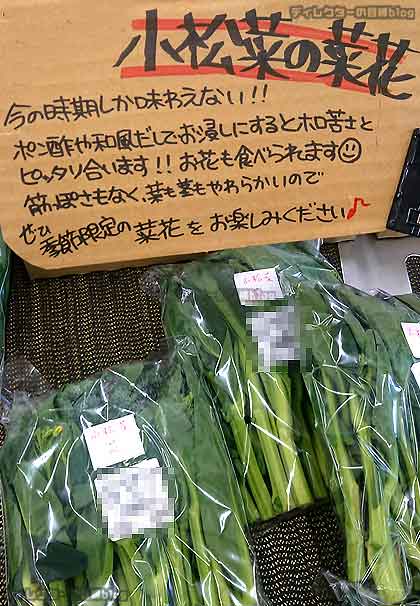 ディレクターの目線blog
小松菜の菜花
今の時期しか味わえない!!
ポン酢や和風だしでお浸しにするとホロ苦さと
ピッタリ合います!!お花も食べられます☺
筋っぽさもなく、葉も茎もやわらかいので
ぜひ季節限定の菜花をお楽しみください♪
小松菜
小松菜
ディレクターの目線blog